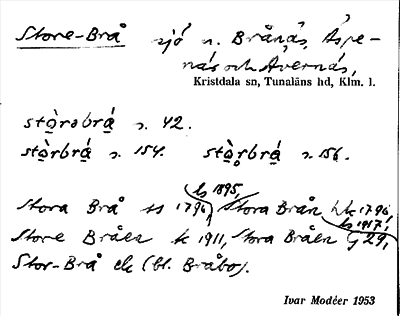 Store-Brå sjö n. Brånäs, Äspe-
näs och Avernäs,
Kristdala sn, Tunaläns hd, Klm. l.
stò̠rəbrá̠ s. 42.
stò̠rbrá̠ s. 154. stò̠rbrá̠ s. 156.
ls 1895,
Stora Brå ss 1796, Stora Brån hk 1796,
ls 1917,
Store Bråen k 1911, Stora Bråen G 29,
Stor-Brå ek (bl. Bråbo).
Ivar Modéer 1953